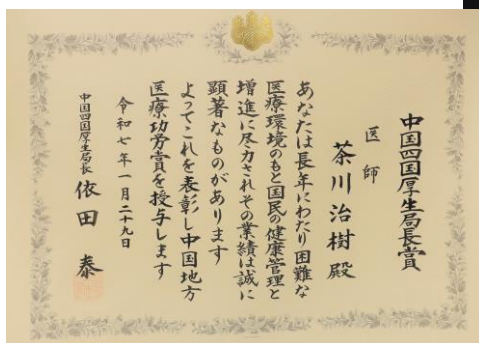 中国四国厚生局長賞
医師
茶川治樹殿
あなたは長年にわたり困難な
医療環境のもと国民の健康管理と
増進に尽力されその業績は誠に
顕著なものがあります
よってこれを表彰し中国地方
医療功労賞を授与します
令和七年一月二十九日
中国四国厚生局長 依田泰